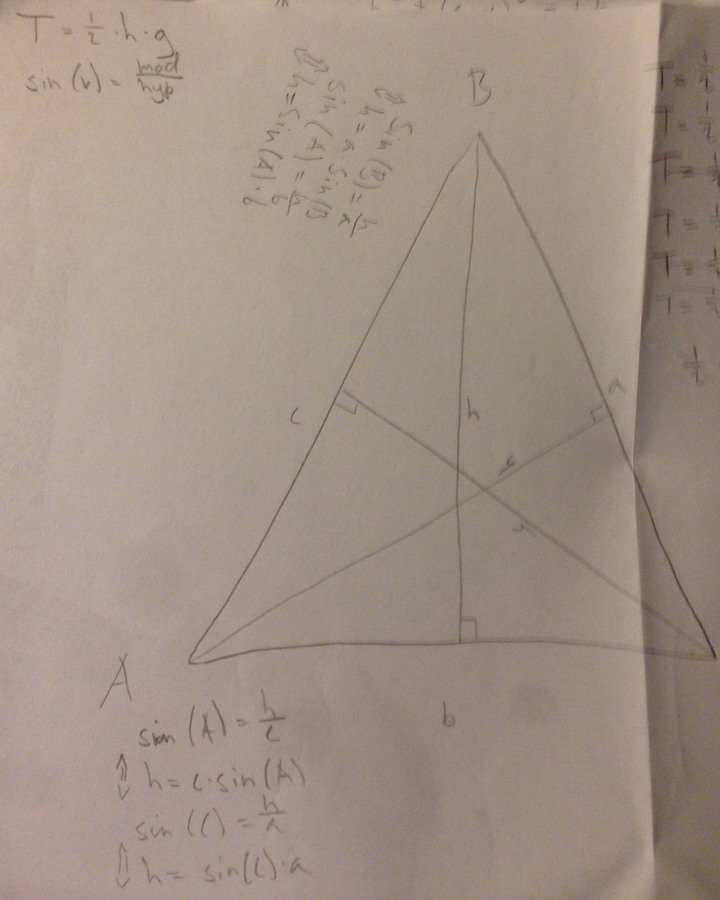 T = ½ · h · g
sin (v) = mod/hyp
B
sin (B) = h/a
⇕ h = a sin(B
sin (A) = h/b
⇕ h = sin(A) · b
T = ½
T = ½
T =
T =
T =
T =
½
c
h
a
h
h
A
b
sin (A) = h/c
⇕ h = c · sin(A)
sin (C) = h/a
⇕ h = sin(C) · a